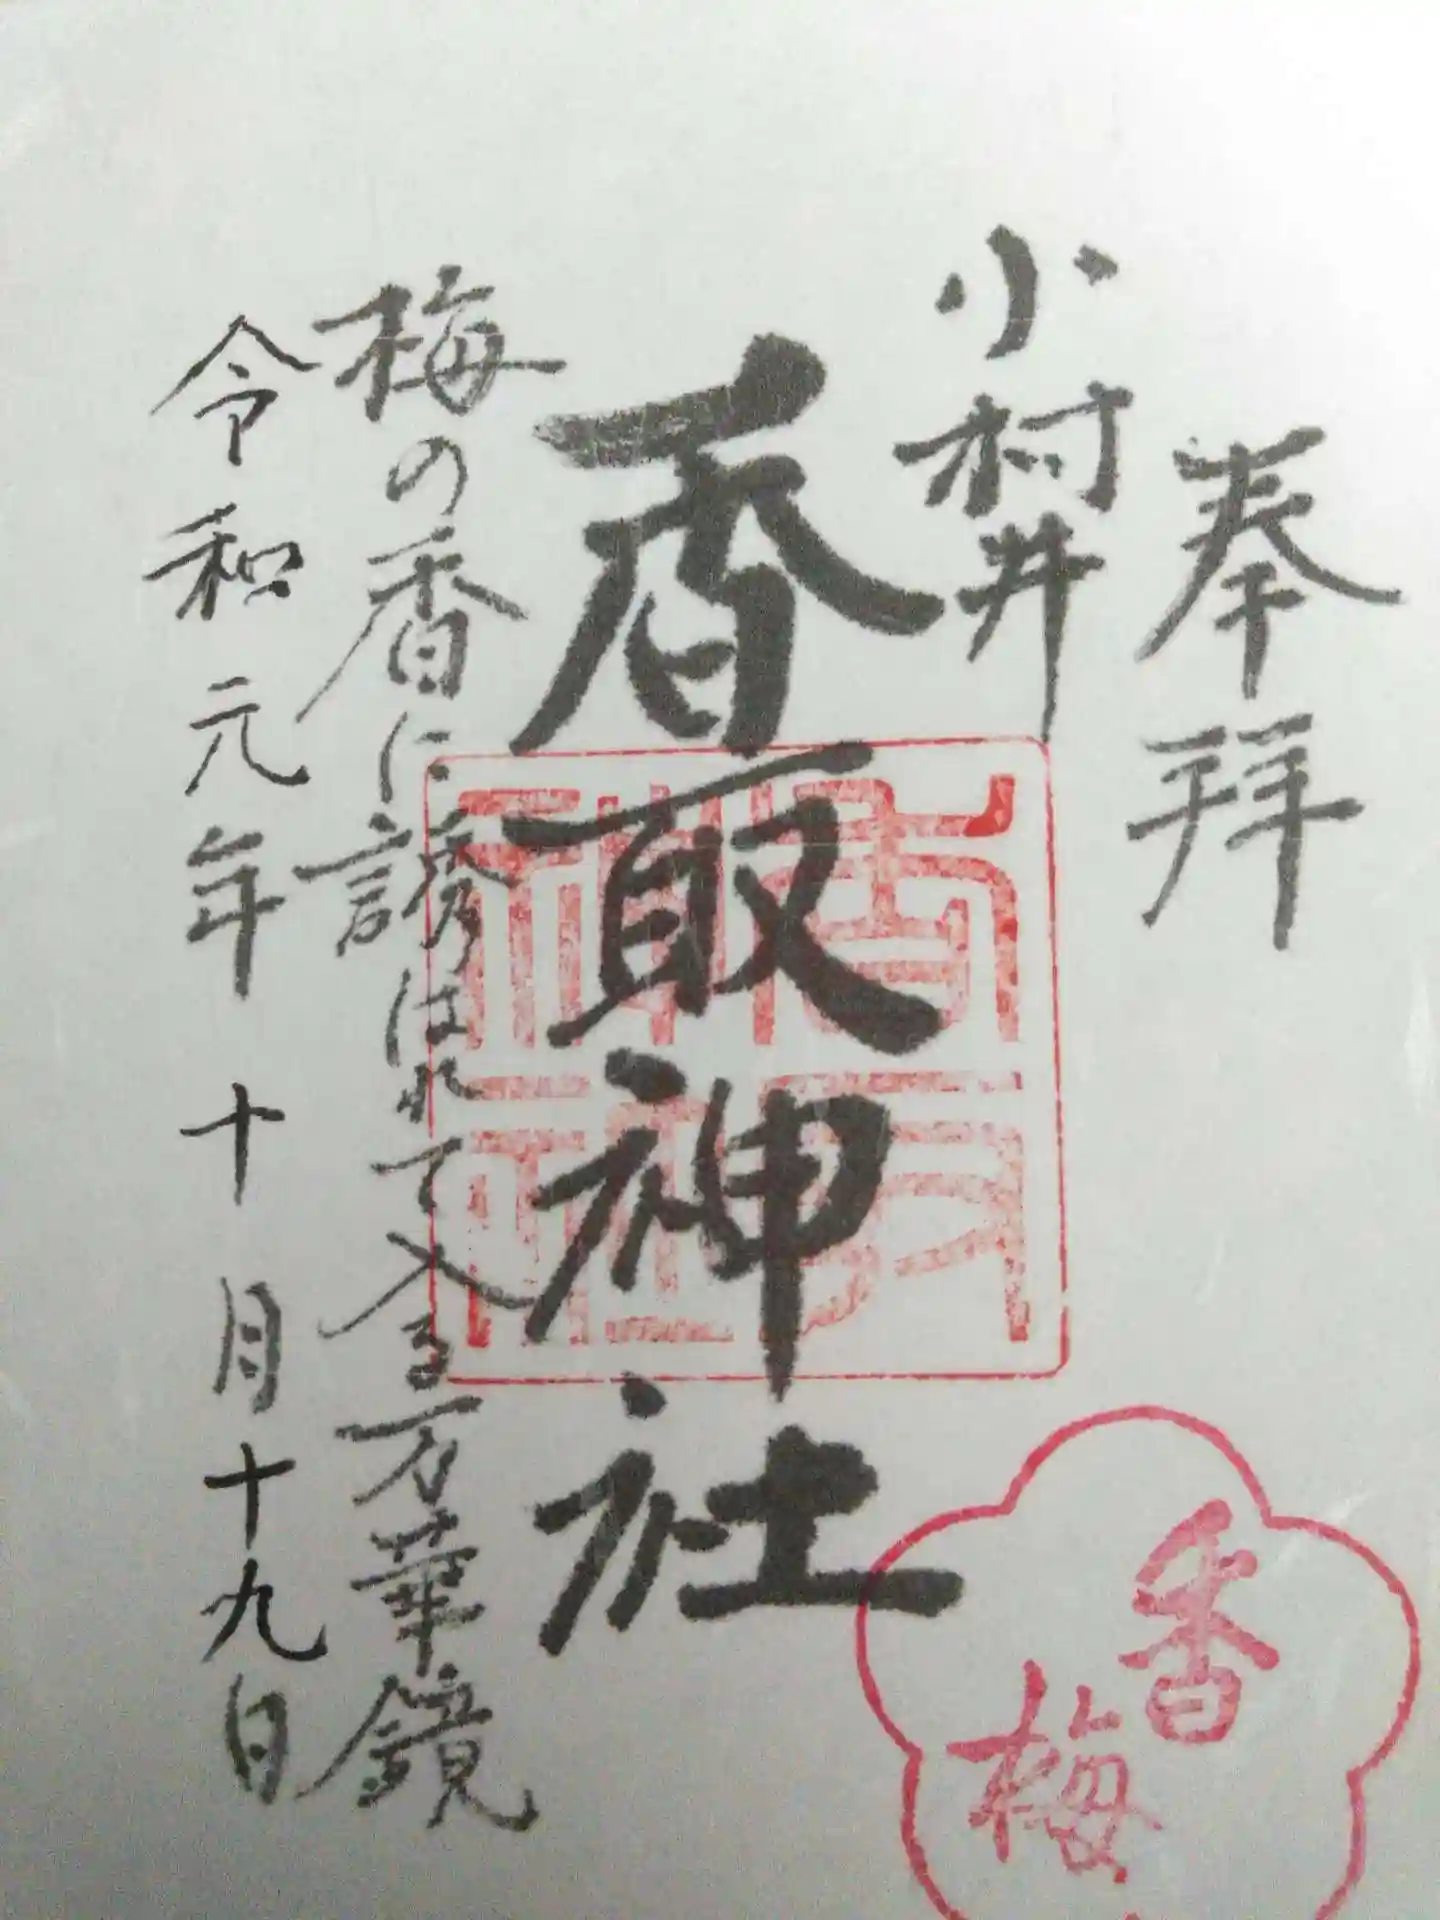 奉拝
小村井
香取神社
梅の香に誘はれて入る万華鏡
令和元年十月十九日
香取神社
香梅